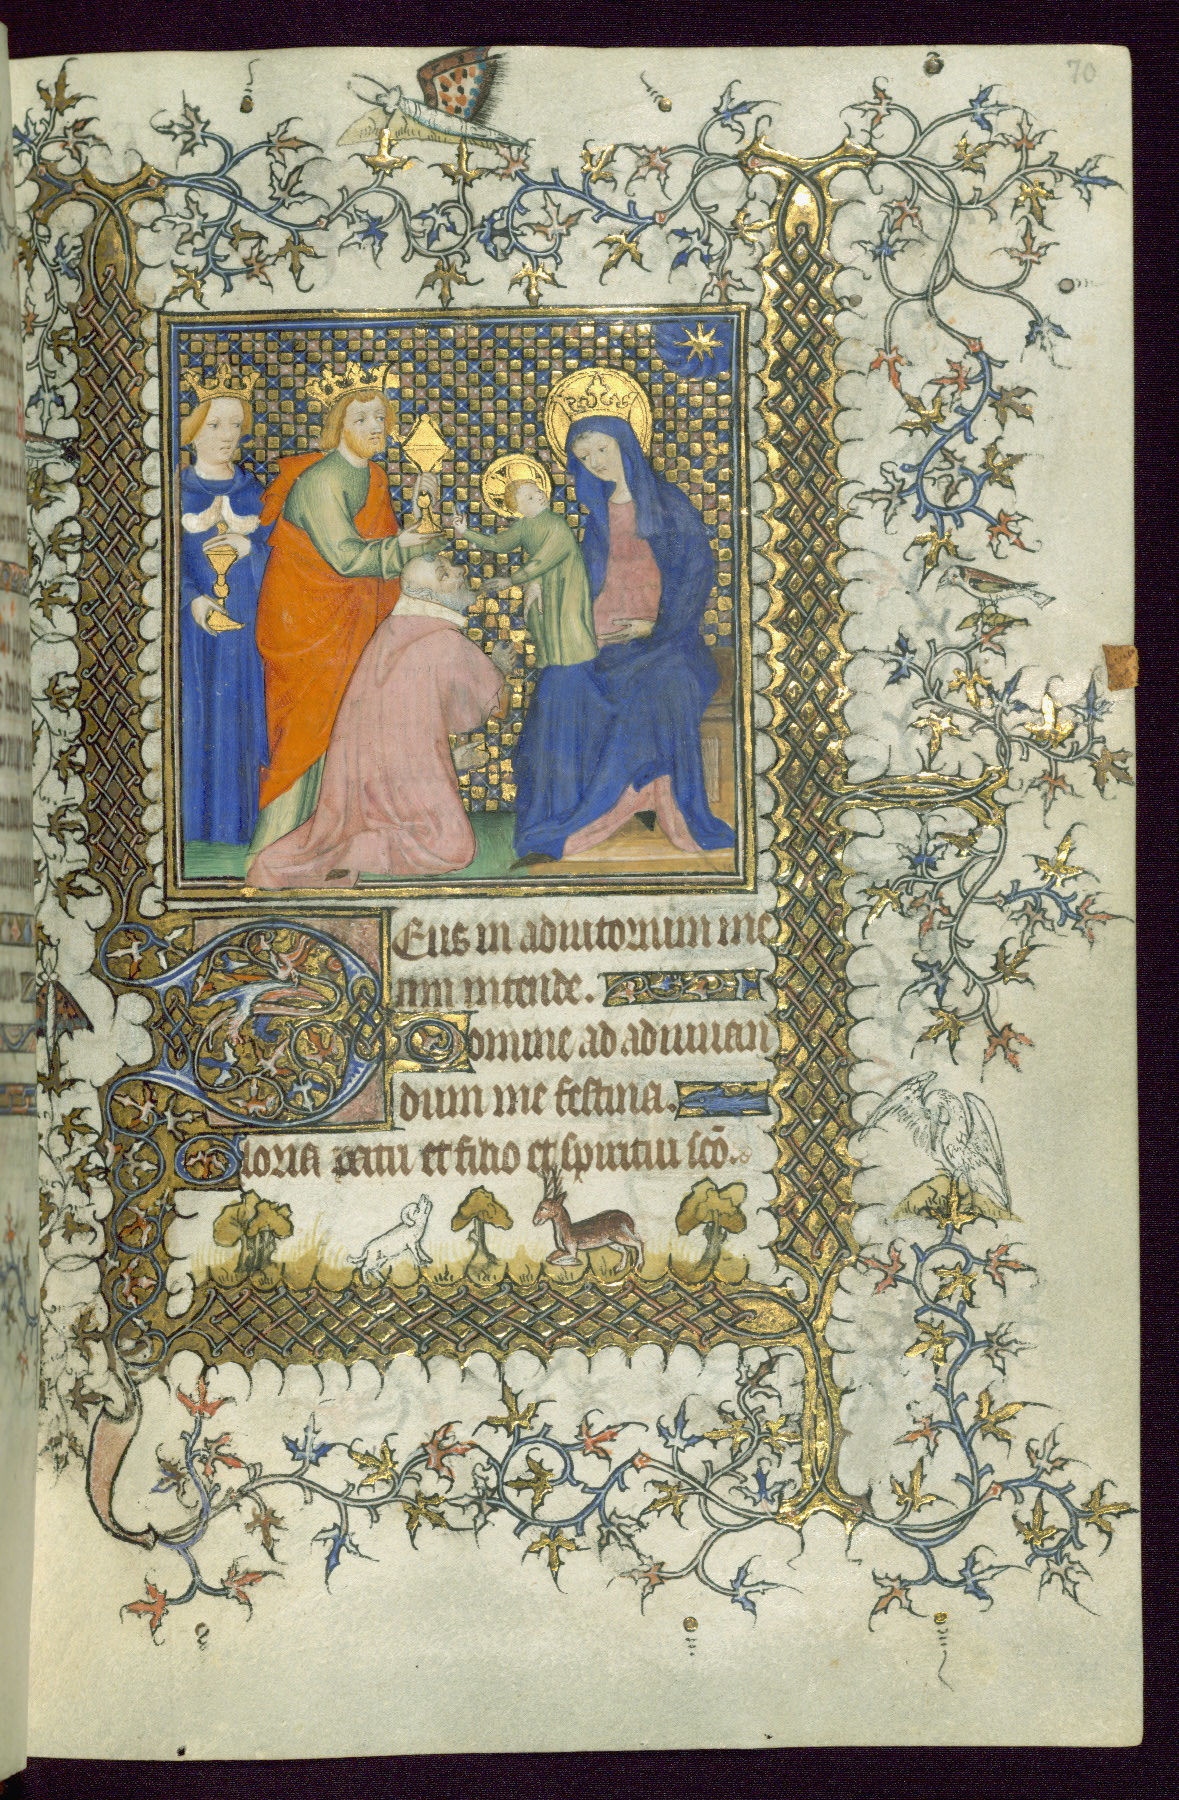 70
Deus in adiutorium me
um intende.
Domine ad adiuuan
dum me festina.
Gloria patri et filio et spiritui sc̄o.